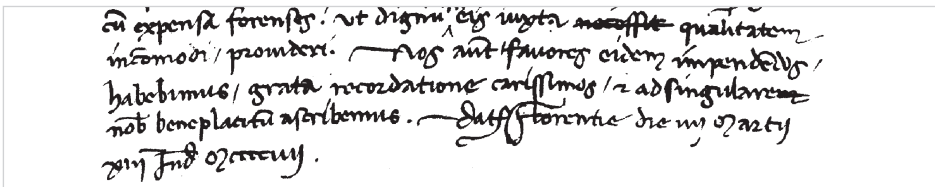 cū expensā forenses / ut dignū eis iuxta necessit qualitatem
incōmodi / provideri. Nos aūt favores eidem impendētes /
habebimus / grata recordatione carissimos / ⁊ ad singularem
nob̄ beneplacitū ascribemus. Dat Florentie die iiij Martij
xiiij Ind Mccccvij.